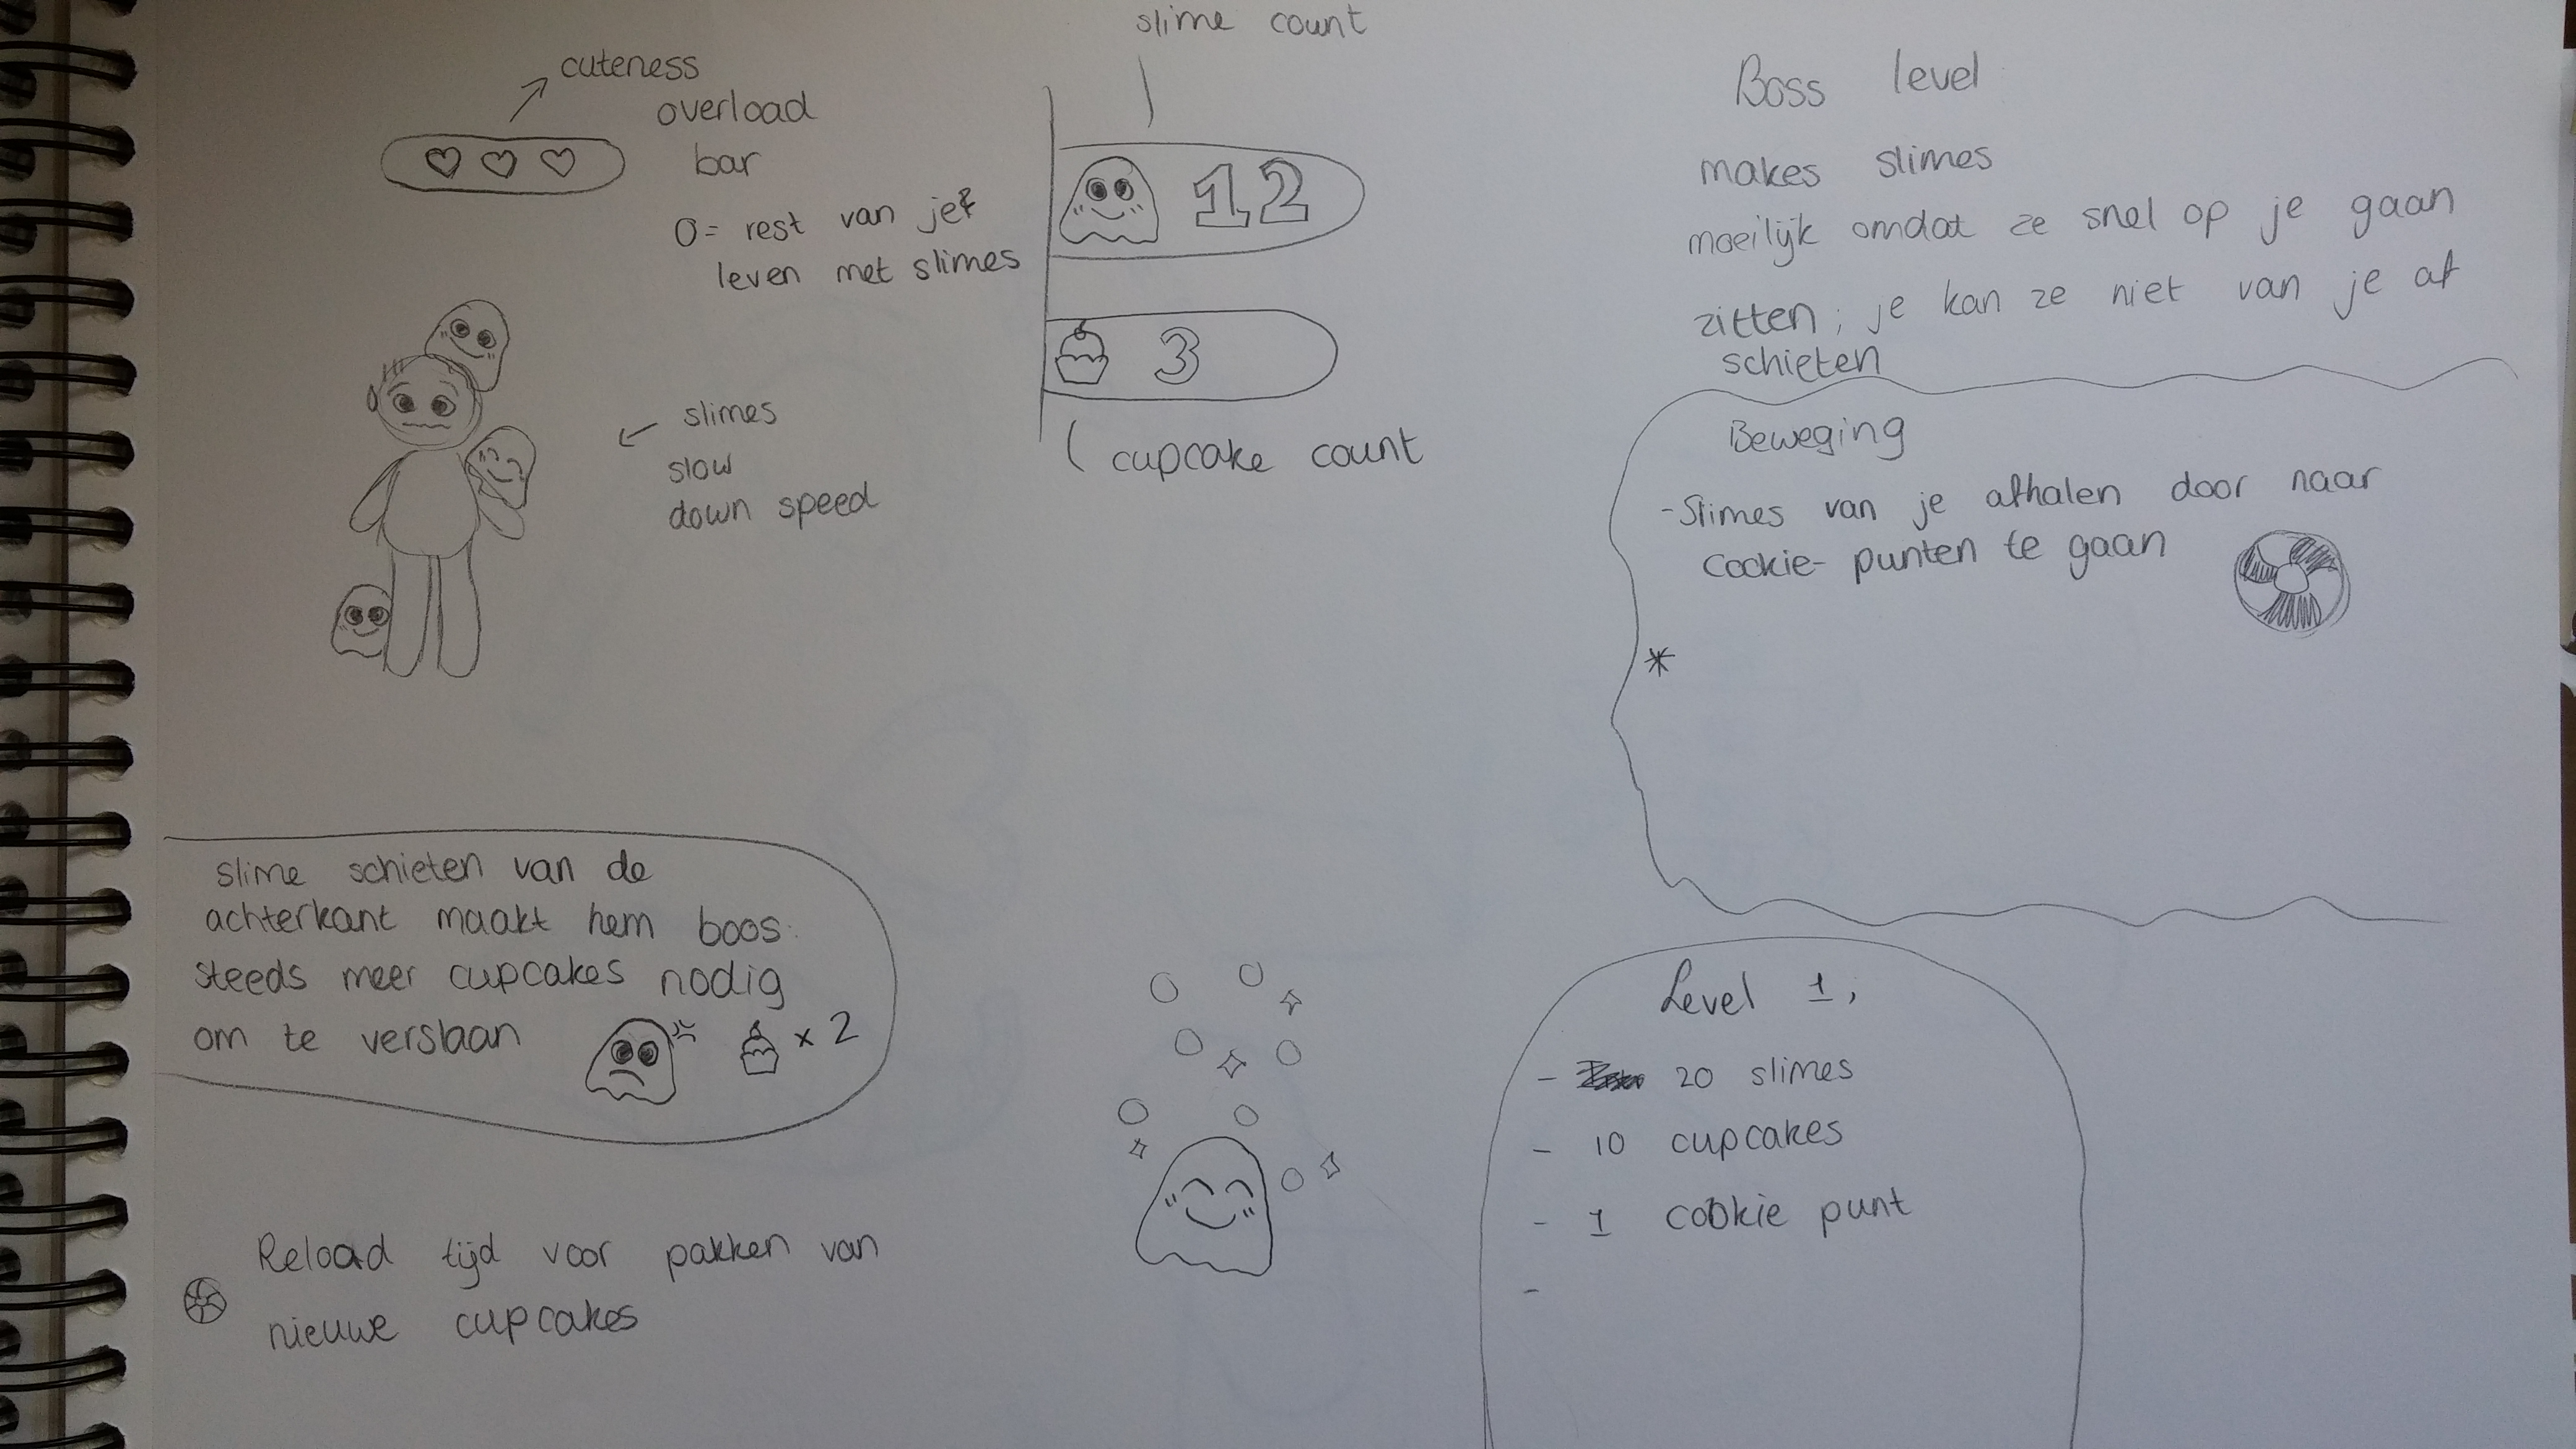 cuteness
overload
bar
0 = rest van je
leven met slimes
slime count
12
3
cupcake count
slimes
slow
down speed
Boss level
makes slimes
moeilijk omdat ze snel op je gaan
zitten; je kan ze niet van je af
schieten
Beweging
- Slimes van je afhalen door naar
cookie- punten te gaan
*
slime schieten van de
achterkant maakt hem boos:
steeds meer cupcakes nodig
om te verslaan
x 2
Reload tijd voor pakken van
nieuwe cupcakes
Level 1;
- 20 slimes
- 10 cupcakes
- 1 cookie punt
-